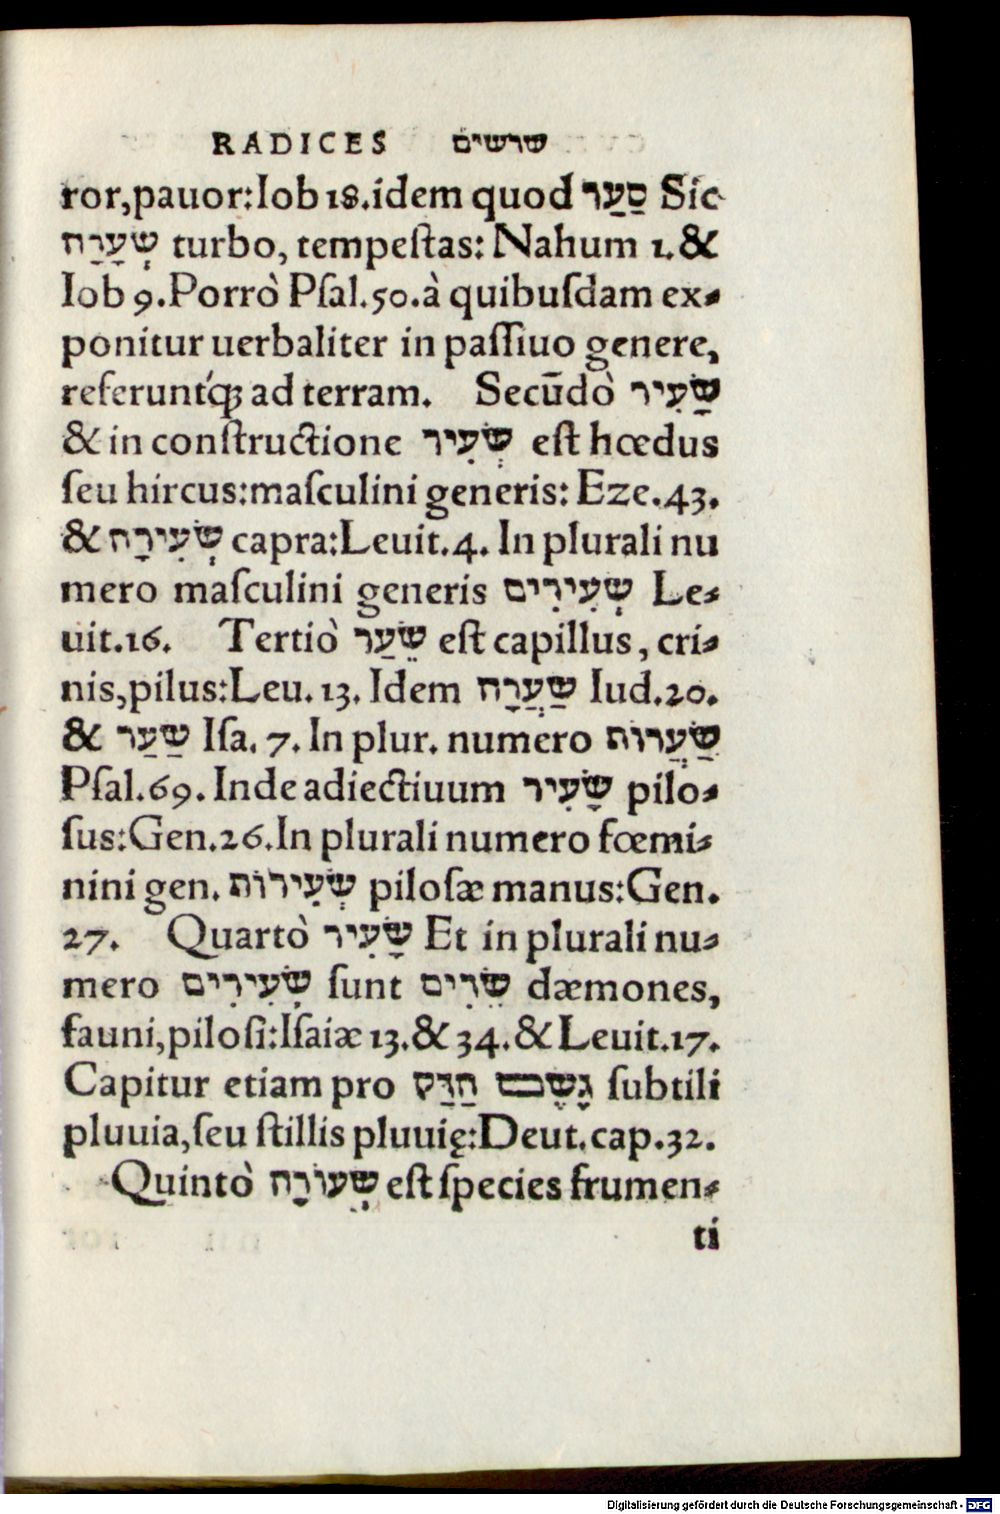 RADICES שרשים
ror,pauor:Iob 18.idem quod סַעַר Sic
שְעָרָה turbo, tempeſtas: Nahum 1.&
Iob 9.Porrò Pſal.50.à quibuſdam ex⸗
ponitur uerbaliter in paſſiuo genere,
referuntq́; ad terram. Secūdò שָׂעִיר
& in conſtructione שְׂעִיר eſt hœdus
ſeu hircus:maſculini generis: Eze.43.
& שְׂעִירָה capra:Leuit.4. In plurali nu
mero maſculini generis שְׂעִירִים Le⸗
uit.16. Tertiò שֵׂעַר eſt capillus, cri⸗
nis,pilus:Leu. 13. Idem שַׂעֲרָה Iud.20.
& שַׂעַר Iſa. 7. In plur. numero שַׂעֲרוֹת
Pſal.69. Inde adiectiuum שָׂעִיר pilo⸗
ſus:Gen.26.In plurali numero fœmi⸗
nini gen. שְׂעִירוֹת piloſæ manus:Gen.
27. Quartò שָׂעִיר Et in plurali nu⸗
mero שְׂעִירִים ſunt שֵׂדִים dæmones,
fauni,piloſi:Iſaiæ 13.& 34.& Leuit.17.
Capitur etiam pro גֶּשֶׁם הַדַּק ſubtili
pluuia,ſeu ſtillis pluuię:Deut.cap.32.
Quintò שְׂעוֹרָה eſt ſpecies frumen⸗
ti
Digitalisierung gefördert durch die Deutsche Forschungsgemeinschaft - DFG